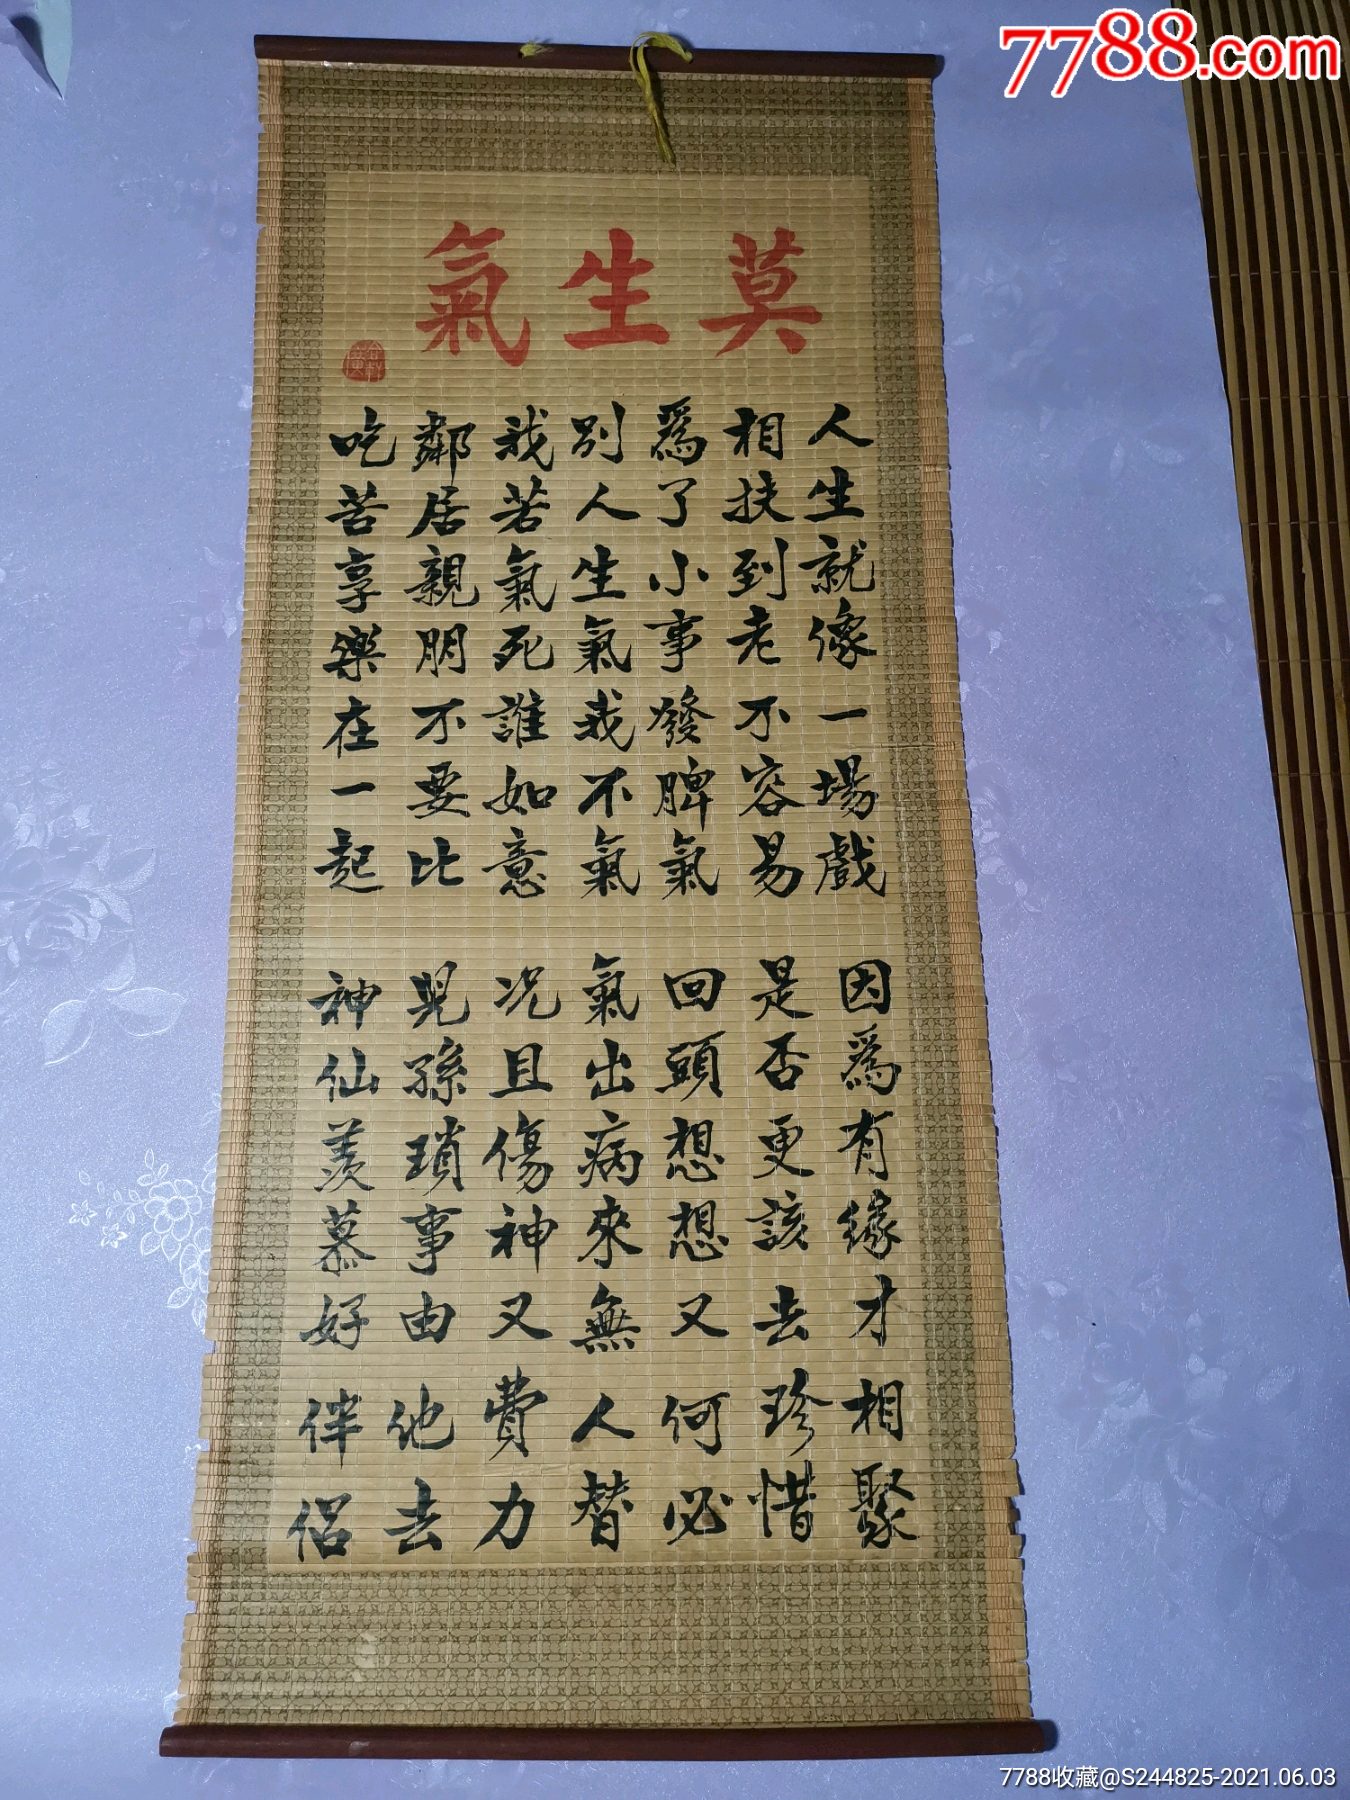 7788.com
莫生氣
人生就像一場戲
因爲有緣才相聚
相扶到老不容易
是否更該去珍惜
爲了小事發脾氣
回頭想想又何必
別人生氣我不氣
氣出病來無人替
我若氣死誰如意
况且傷神又費力
鄰居親朋不要比
兒孫瑣事由他去
吃苦享樂在一起
神仙羡慕好伴侶
7788收藏@S244825-2021.06.03